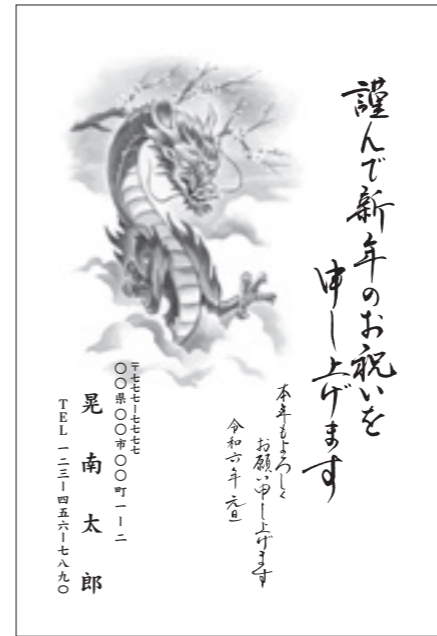 謹んで新年のお祝いを
申し上げます
本年もよろしく
お願い申し上げます
令和六年 元旦
〒七七七ー七七七七
〇〇県〇〇市〇〇町一ー二
晃南太郎
TEL 一二三ー四五六ー七八九〇